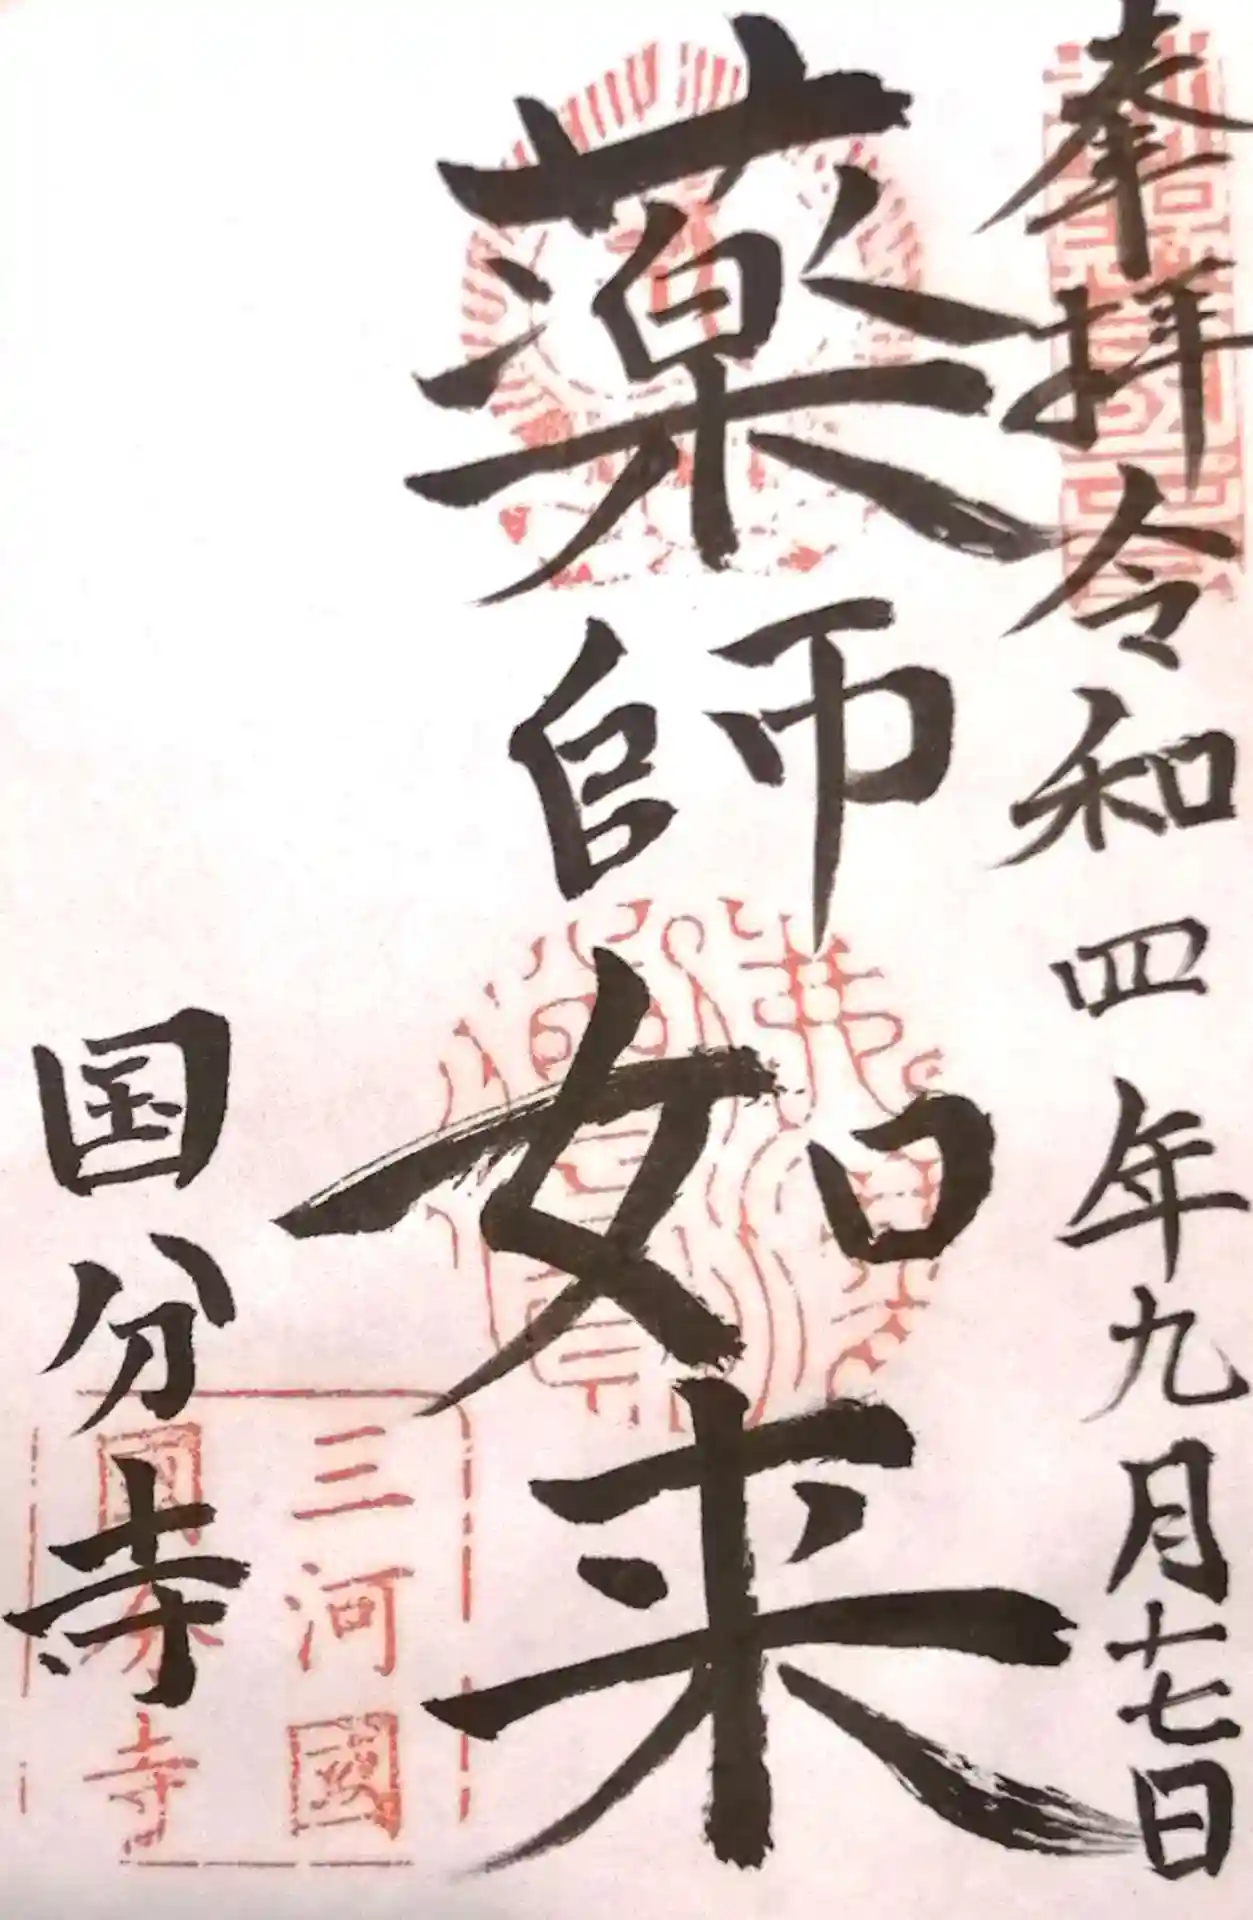 奉拝 令和四年九月十七日
薬師如来
国分寺
三河國
國分寺